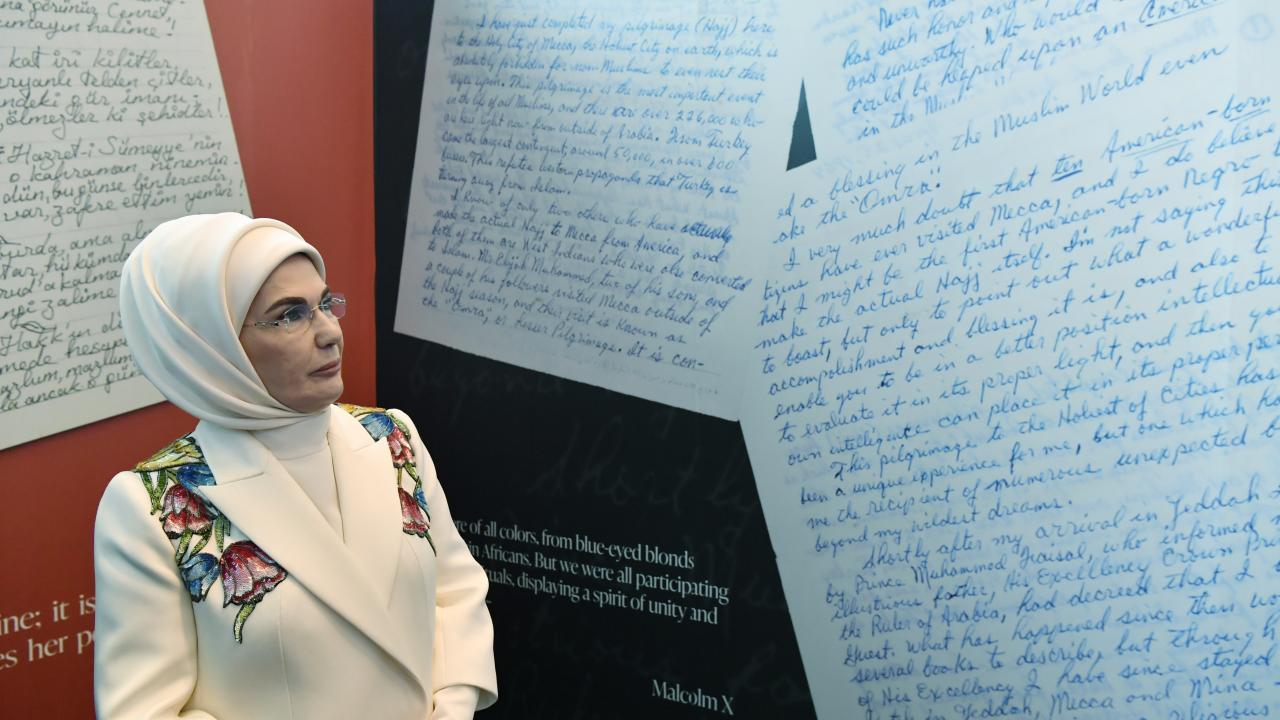 na görünür Cennet,
mayın haline!
kat iri kilitler
telden çitler,
gür iman
ölmezler ki şehidler!
Hazret-i Sümeyye'nin
o kahraman
zafere ettim yemin!
ama
zalime
Hakk'ın
mazlum,
ancak o
ine; it is
es her
I have just completed my pilgrimage (Hajj) here
to the Holy City of Mecca, the Holiest City on earth, which is
absolutely forbidden for non-Muslims to even rest their
eyes upon. This pilgrimage is the most important event
in the life of all Muslims, and there are over 226,000 who
are here right now from outside of Arabia. From Turkey
came the largest contingent, around 50,000, in over 600
buses. This refutes western propaganda that Turkey is
turning away from Islam.
I know of only two others who have actually
made the actual Hajj to Mecca from America, and
both of them are West Indians who were also converted
to Islam. Mr. Elijah Muhammad, two of his sons, and
a couple of his followers visited Mecca outside of
the Hajj season, and their visit is known as
the "Omra", or Lesser Pilgrimage. It is con-
Never ha
has such honor and
and unworthy. Who would
could be heaped upon an American
in the
ed a blessing in the Muslim World even
ake the "Omra."
I very much doubt that ten American-born
tizens have ever visited Mecca, and I do believe
hat I might be the first American-born Negro t
make the actual Hajj itself. I'm not saying this
to boast, but only to point out what a wonderfu
accomplishment and blessing it is, and also to
enable you to be in a better position intellectu
to evaluate it in its proper light, and then yo
own intelligence can place it in its proper per
This pilgrimage to the Holiest of Cities has
been a unique experience for me, but one which ha
me the recipient of numerous unexpected b
beyond my wildest dreams.
Shortly after my arrival in Jeddah I
by Prince Muhammed Faisal, who informed m
illustrious father, His Excellency Crown Pri
the Ruler of Arabia, had decreed that I
guest. What has happened since then wo
several books to describe, but through
of His Excellency I have since stayed
in Jeddah, Mecca and Mina
re of all colors, from blue-eyed blonds
in Africans. But we were all participating
uals, displaying a spirit of unity and
Malcolm X